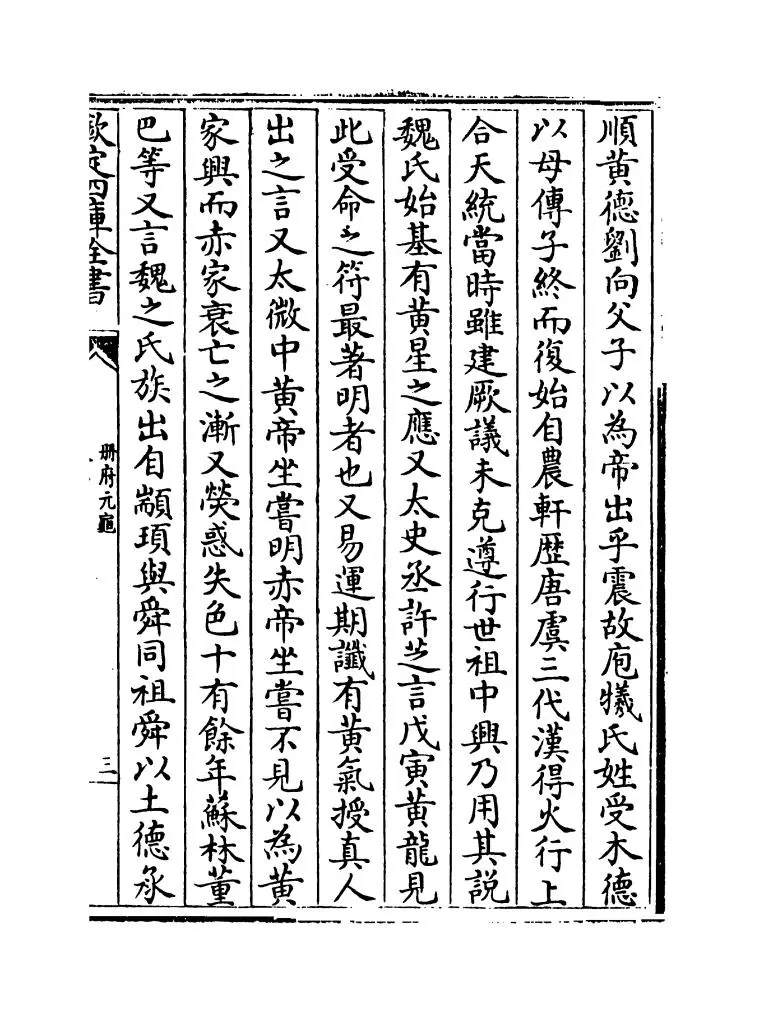 順黄德劉向父子以為帝出乎震故庖犧氏姓受木德
以母傳子終而復始自農軒歴唐虞三代漢得火行上
合天統當時雖建厥議未克遵行世祖中興乃用其説
魏氏始基有黄星之應又太史丞許芝言戊寅黄龍見
此受命之符最著明者也又易運期讖有黄氣授真人
出之言又太微中黄帝坐嘗明赤帝坐嘗不見以為黄
家興而赤家衰亡之漸又熒惑失色十有餘年蘇林董
巴等又言魏之氏族出自顓頊與舜同祖舜以土德承
欽定四庫全書
册府元龜
三